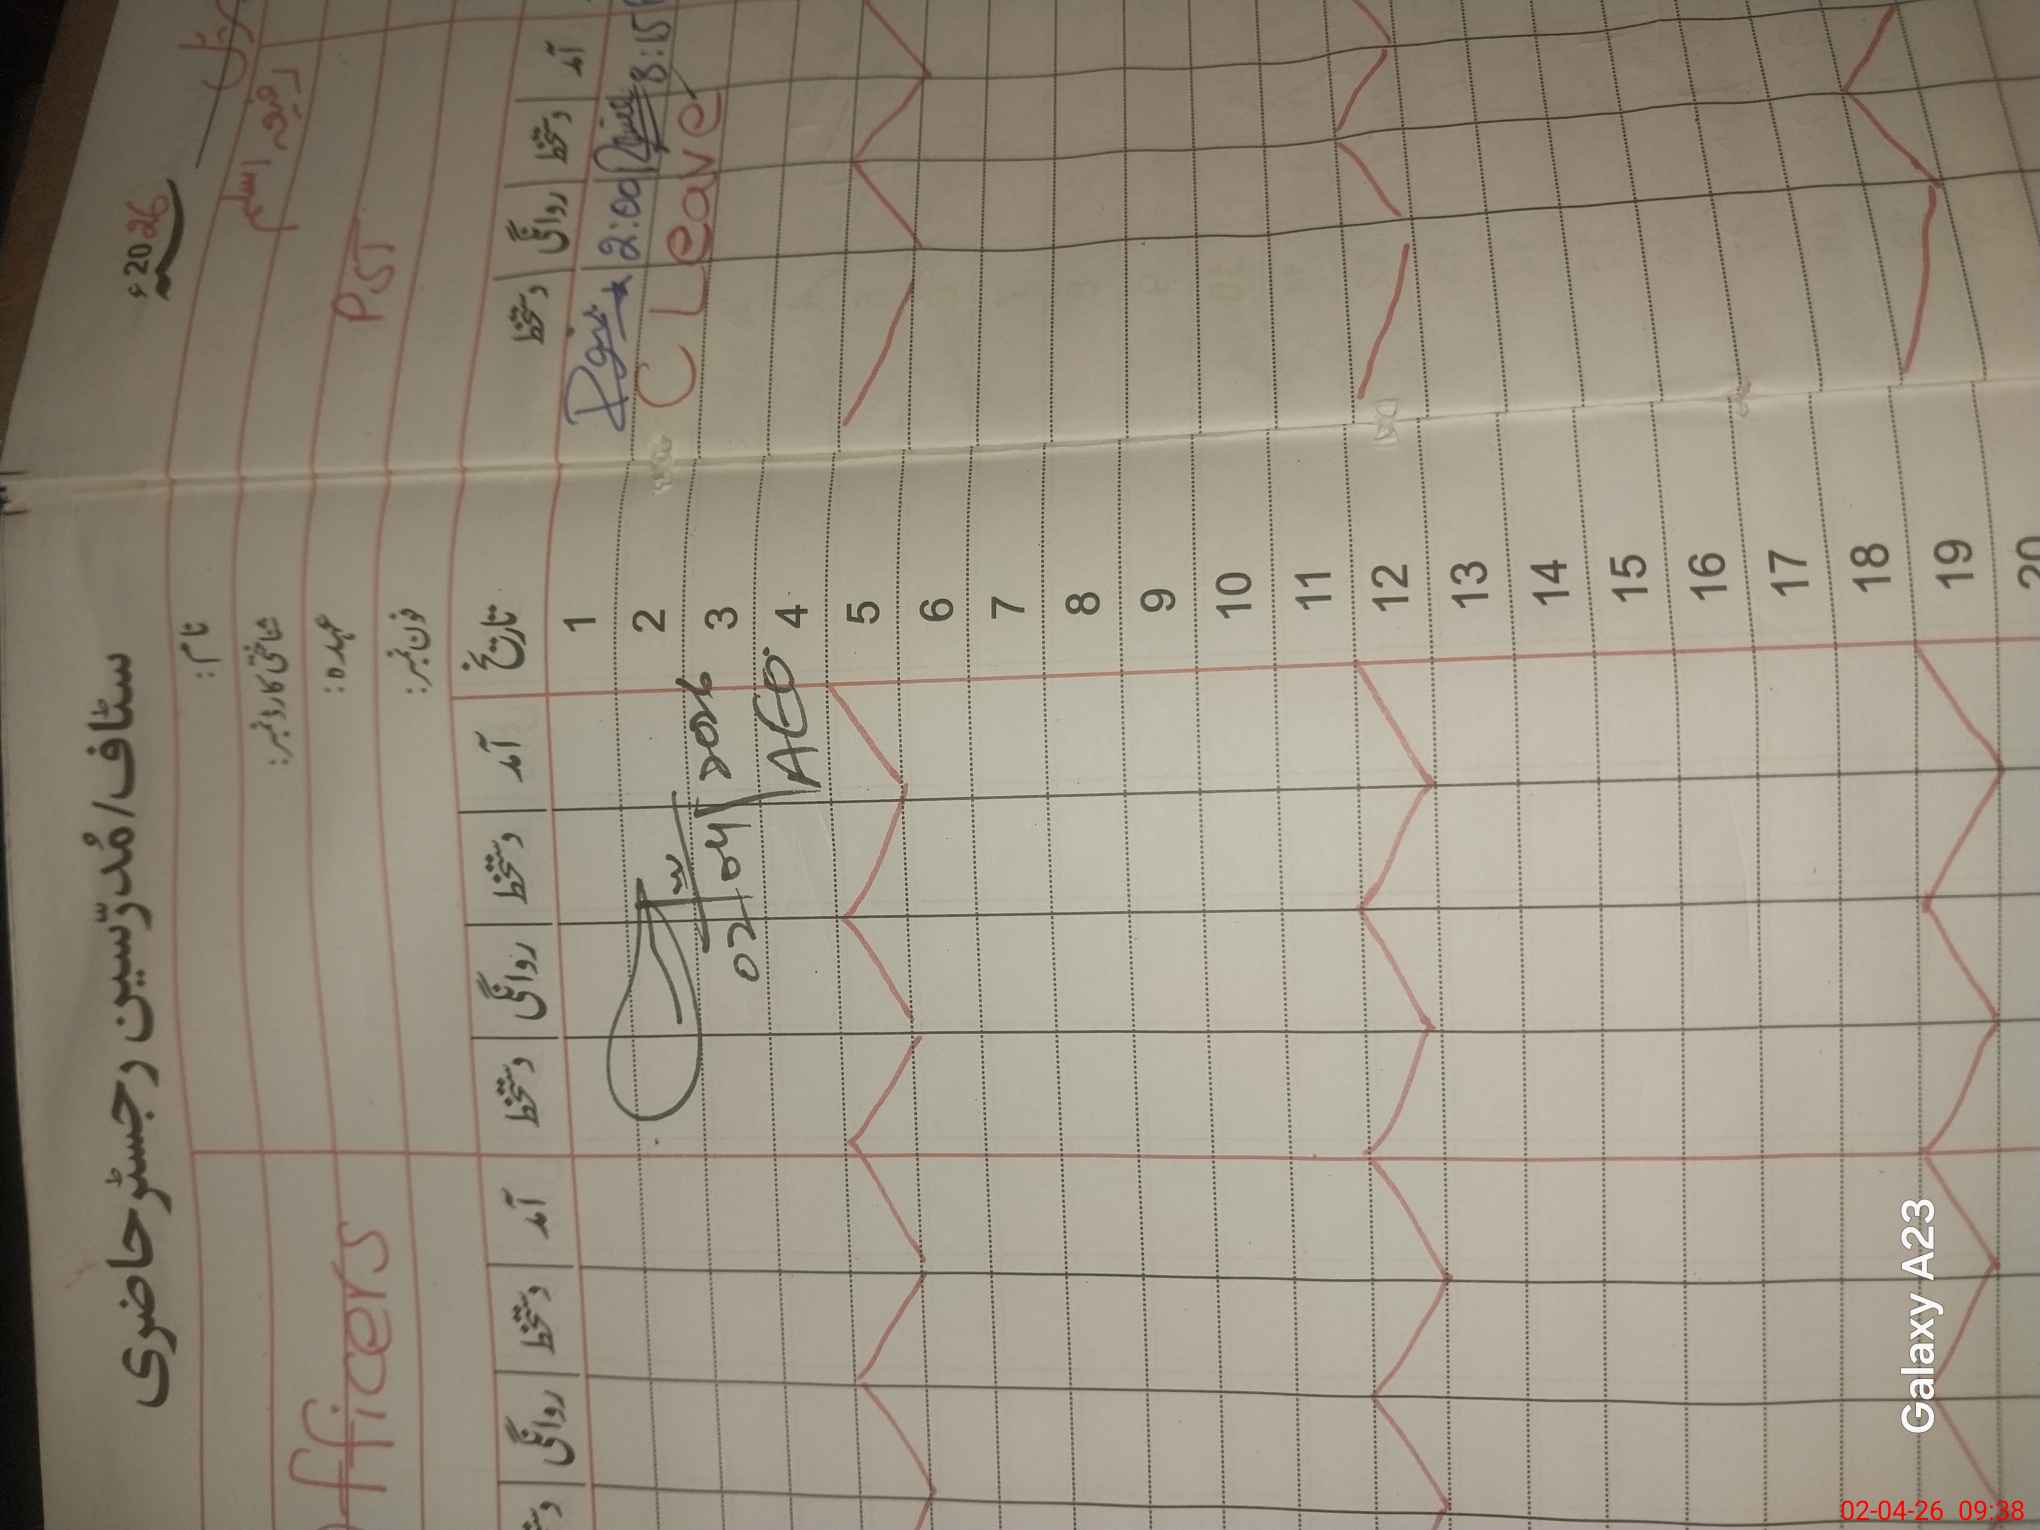 سٹاف/مُدرّسین رجسٹر حاضری
ء2026
نام:
شناختی کارڈ نمبر:
عہدہ:
فون نمبر:
اسلم
PST
fficers
آمد دستخط روانگی دستخط تاریخ آمد دستخط روانگی دستخط آمد دستخط روانگی
1
2:00
8:15
2
C Leave
3
02/04/2026
4
AEO
5
6
7
8
9
10
11
12
13
14
15
16
17
18
19
20
Galaxy A23
02-04-26 09:38